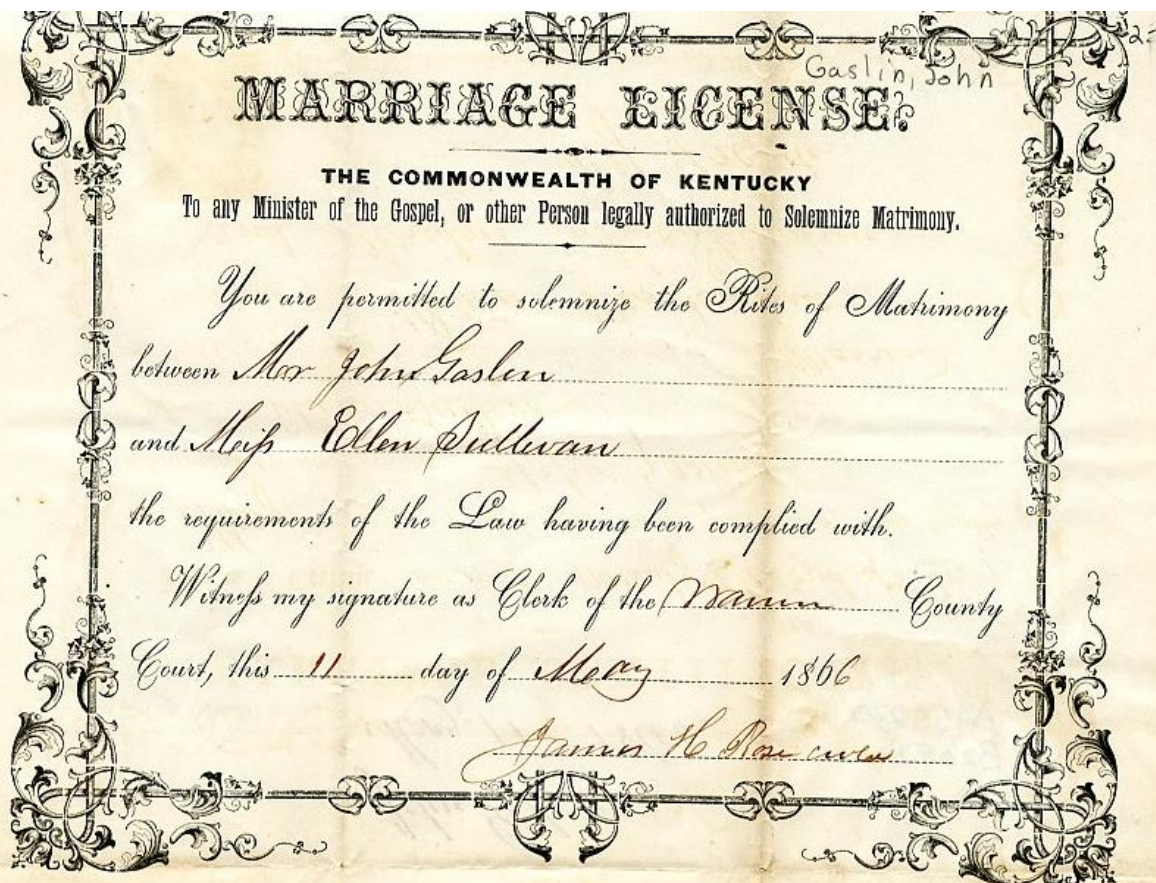 22
Gaslin, John
MARRIAGE LICENSE.
THE COMMONWEALTH OF KENTUCKY
To any Minister of the Gospel, or other Person legally authorized to Solemnize Matrimony.
You are permitted to solemnize the Rites of Matrimony
between Mr John Gaslin
and Miss Ellen Sullivan
the requirements of the Law having been complied with.
Witness my signature as Clerk of the Warren County
Court, this 11 day of May 1866
James H Rose